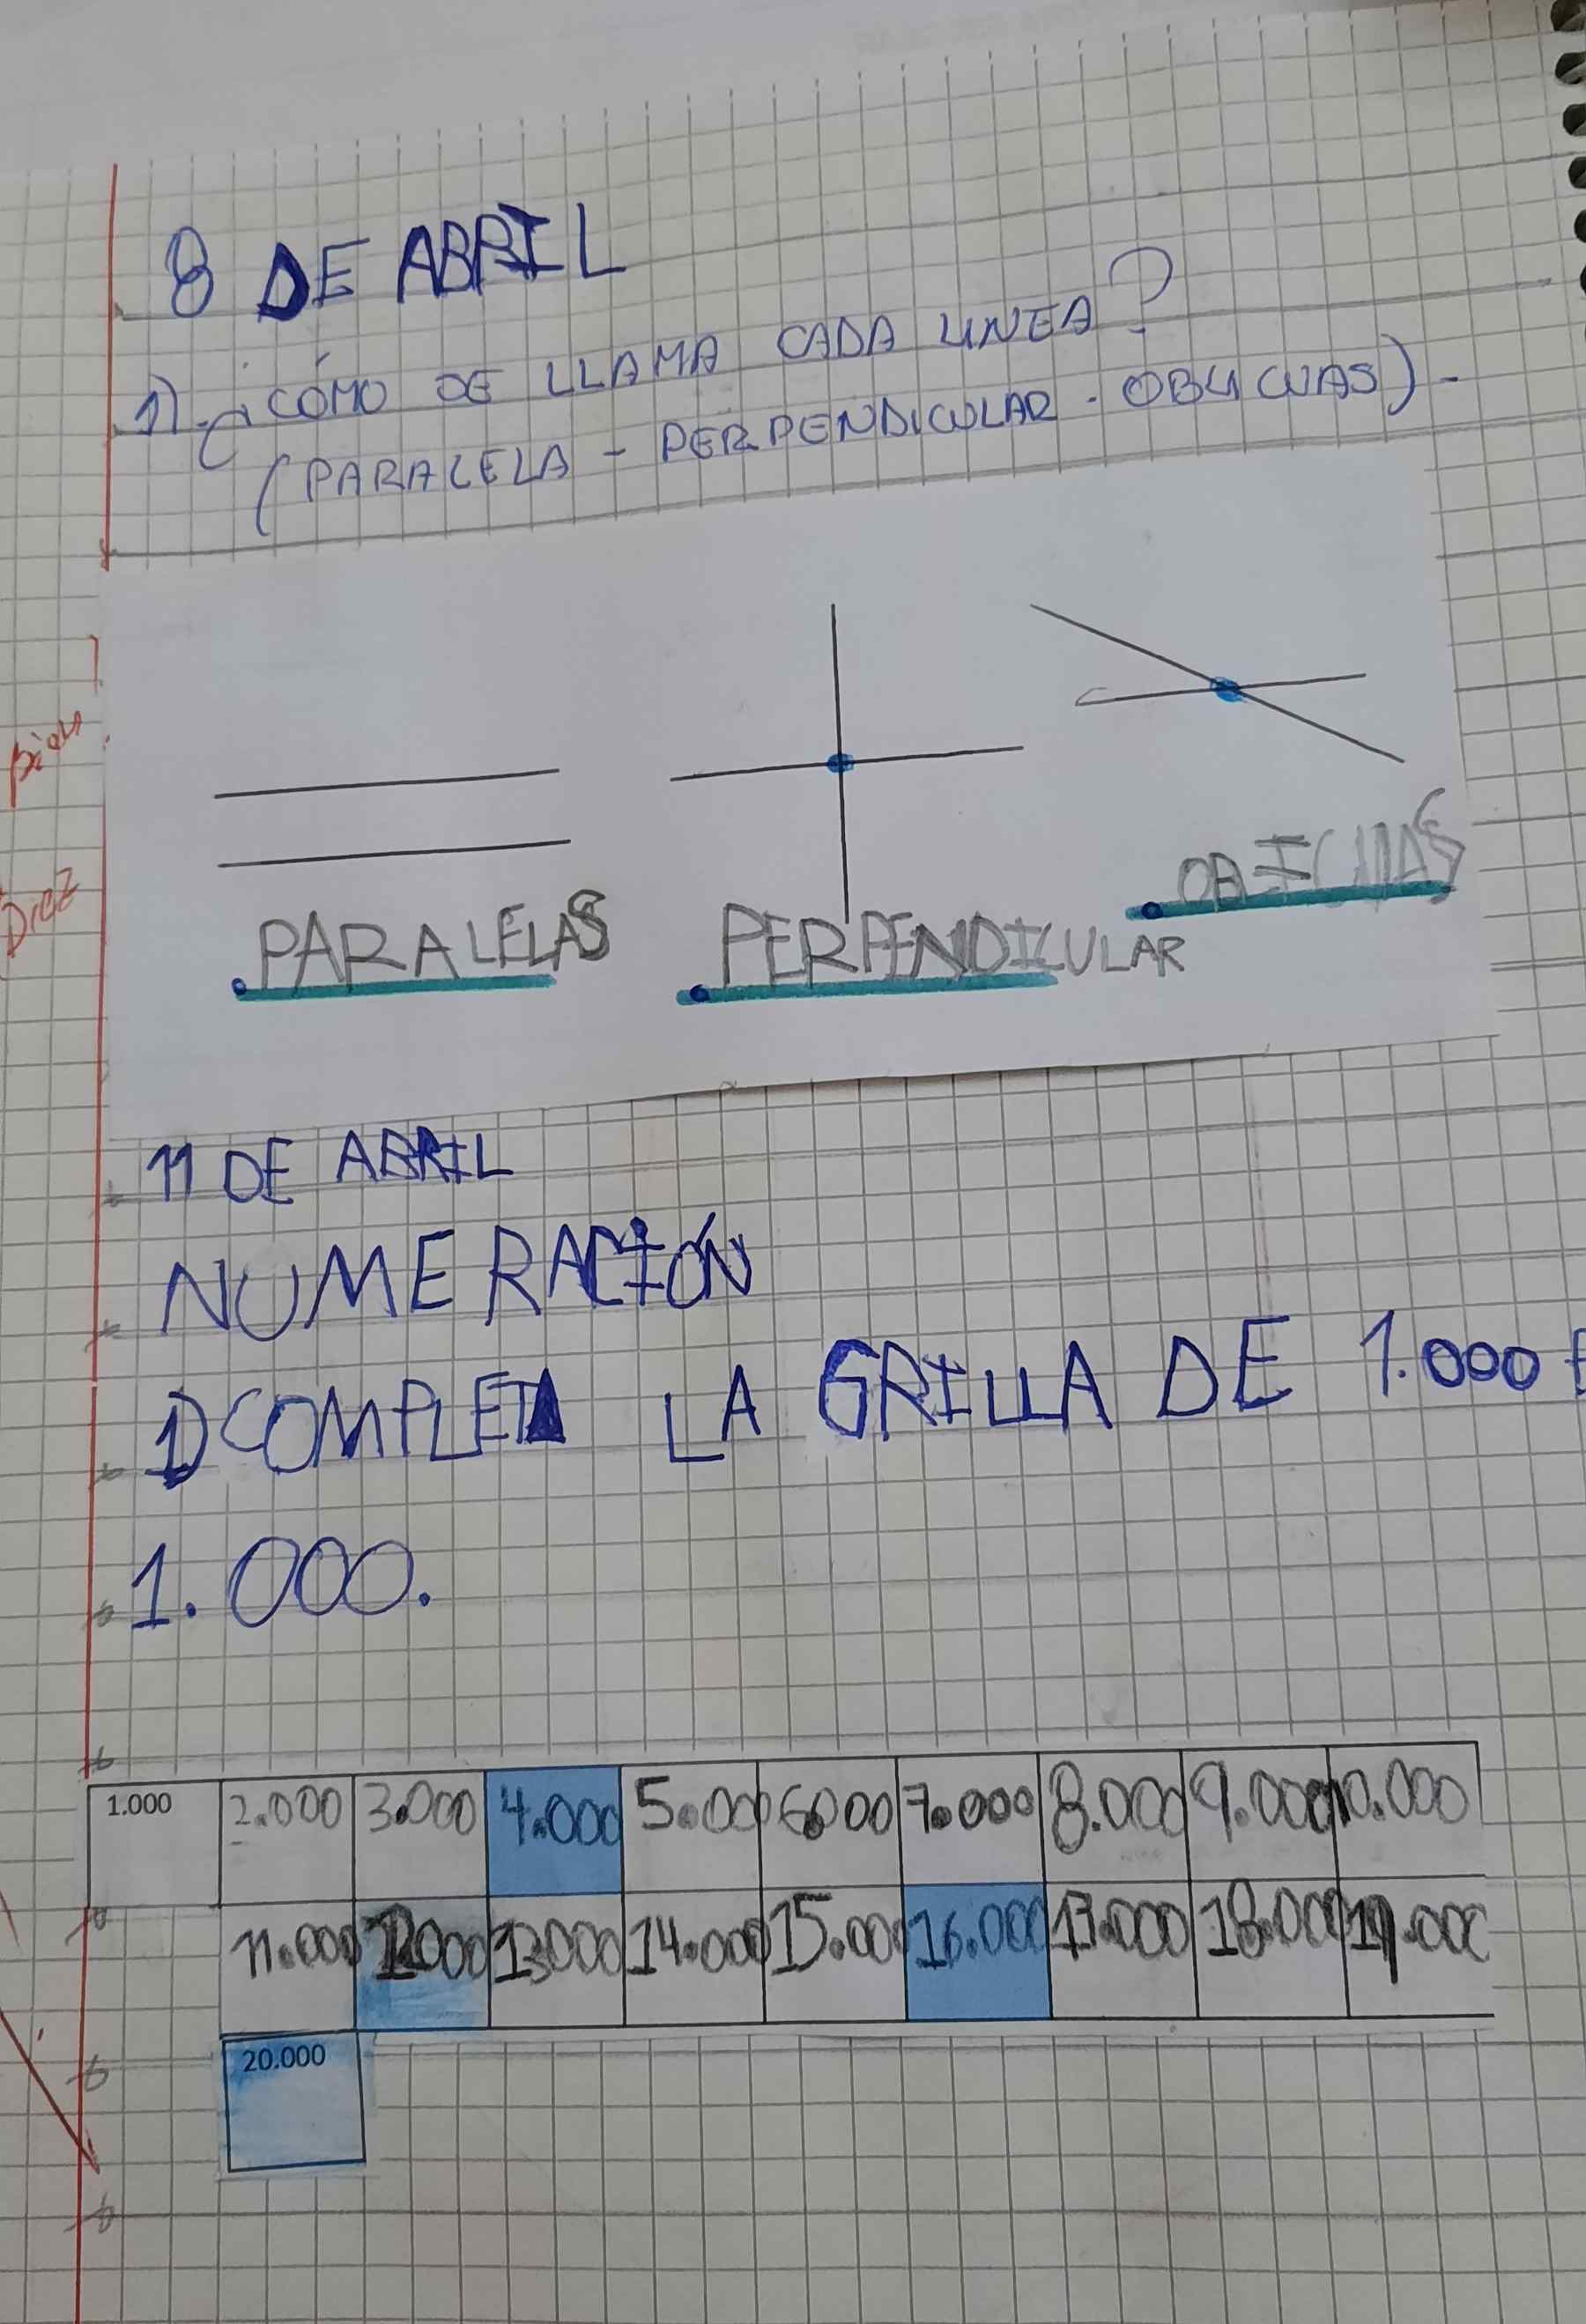 8 DE ABRIL
1).- ¿CÓMO DE LLAMA CADA LINEA?
(PARALELA - PERPENDICULAR - OBLICUAS).-
Bien
Diez
.PARALELAS
.PERPENDICULAR
.OBLICUAS
11 DE ABRIL
NUMERACIÓN
1) COMPLETA LA GRILLA DE 1.000 E
1.000.
1.000 2.000 3.000 4.000 5.000 6.000 7.000 8.000 9.000 10.000
11.000 12.000 13.000 14.000 15.000 16.000 17.000 18.000 19.000
20.000